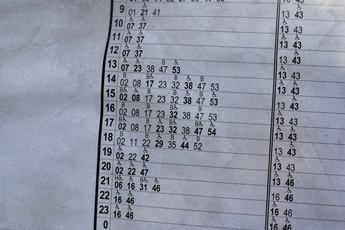 9 01 21 41
13 43
10 07 37
13 43
11 07 37
13 43
12 07 37
13 43
13 07 23 38 47 53
13 43
14 02 08 17 23 32 38 47 53
13 43
15 02 08 17 23 32 38 47 53
13 43
16 02 08 17 23 32 38 47 53
13 43
17 02 08 17 23 32 38 47 54
13 43
18 02 11 22 29 35 44 52
13 43
19 02 22 42
13 46
20 02 22 47
13 46
21 06 16 31 46
16 46
22 16 46
16 46
23 16 46
16 46
0